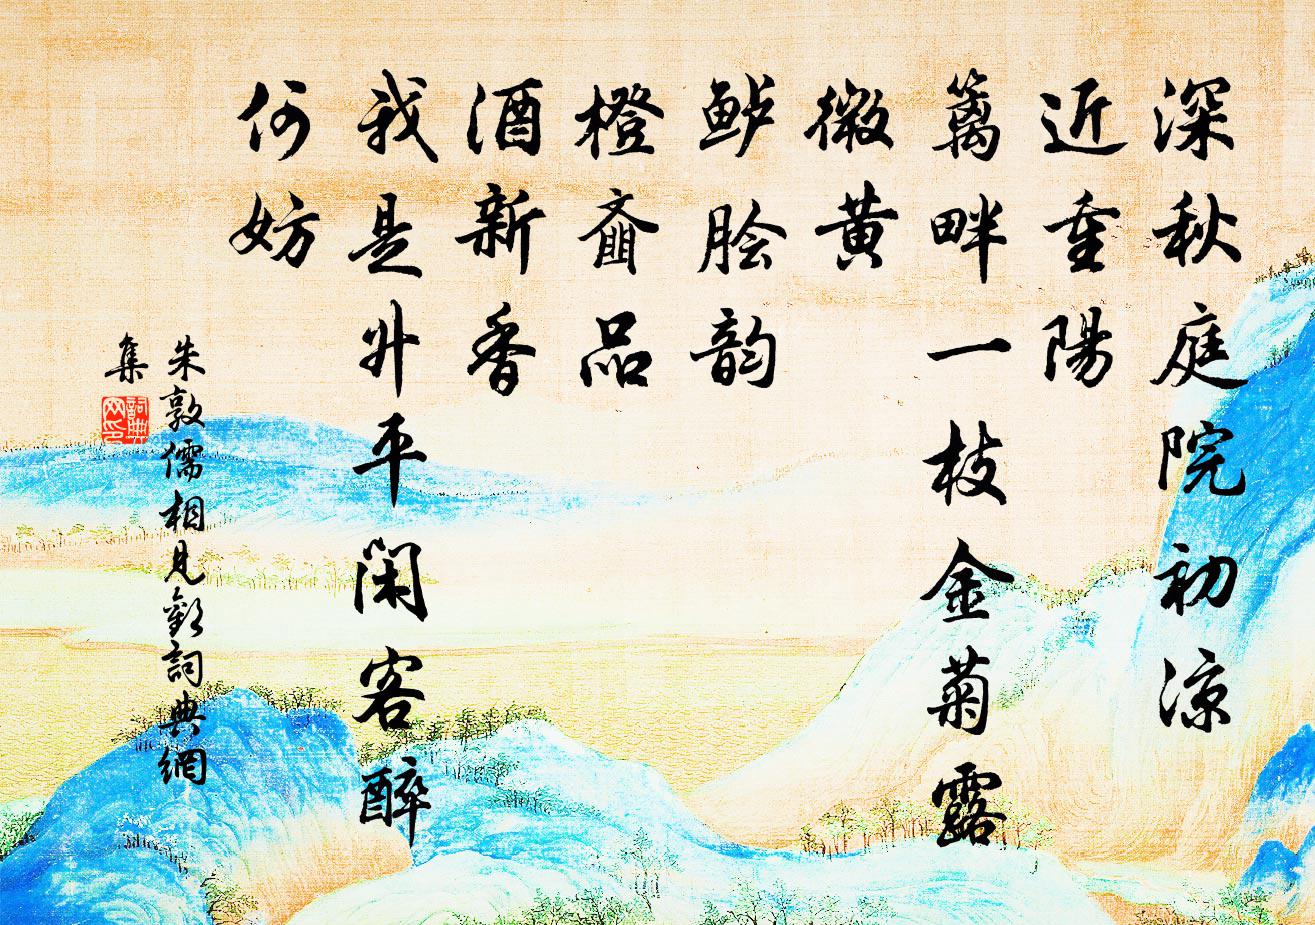 深秋庭院初涼
近重陽
籬畔一枝金菊露
微黄
鲈脍韵
橙齑品
酒新香
我是升平閑客醉
何妨
朱敦儒相見歡詞典網
集
詞典
网印